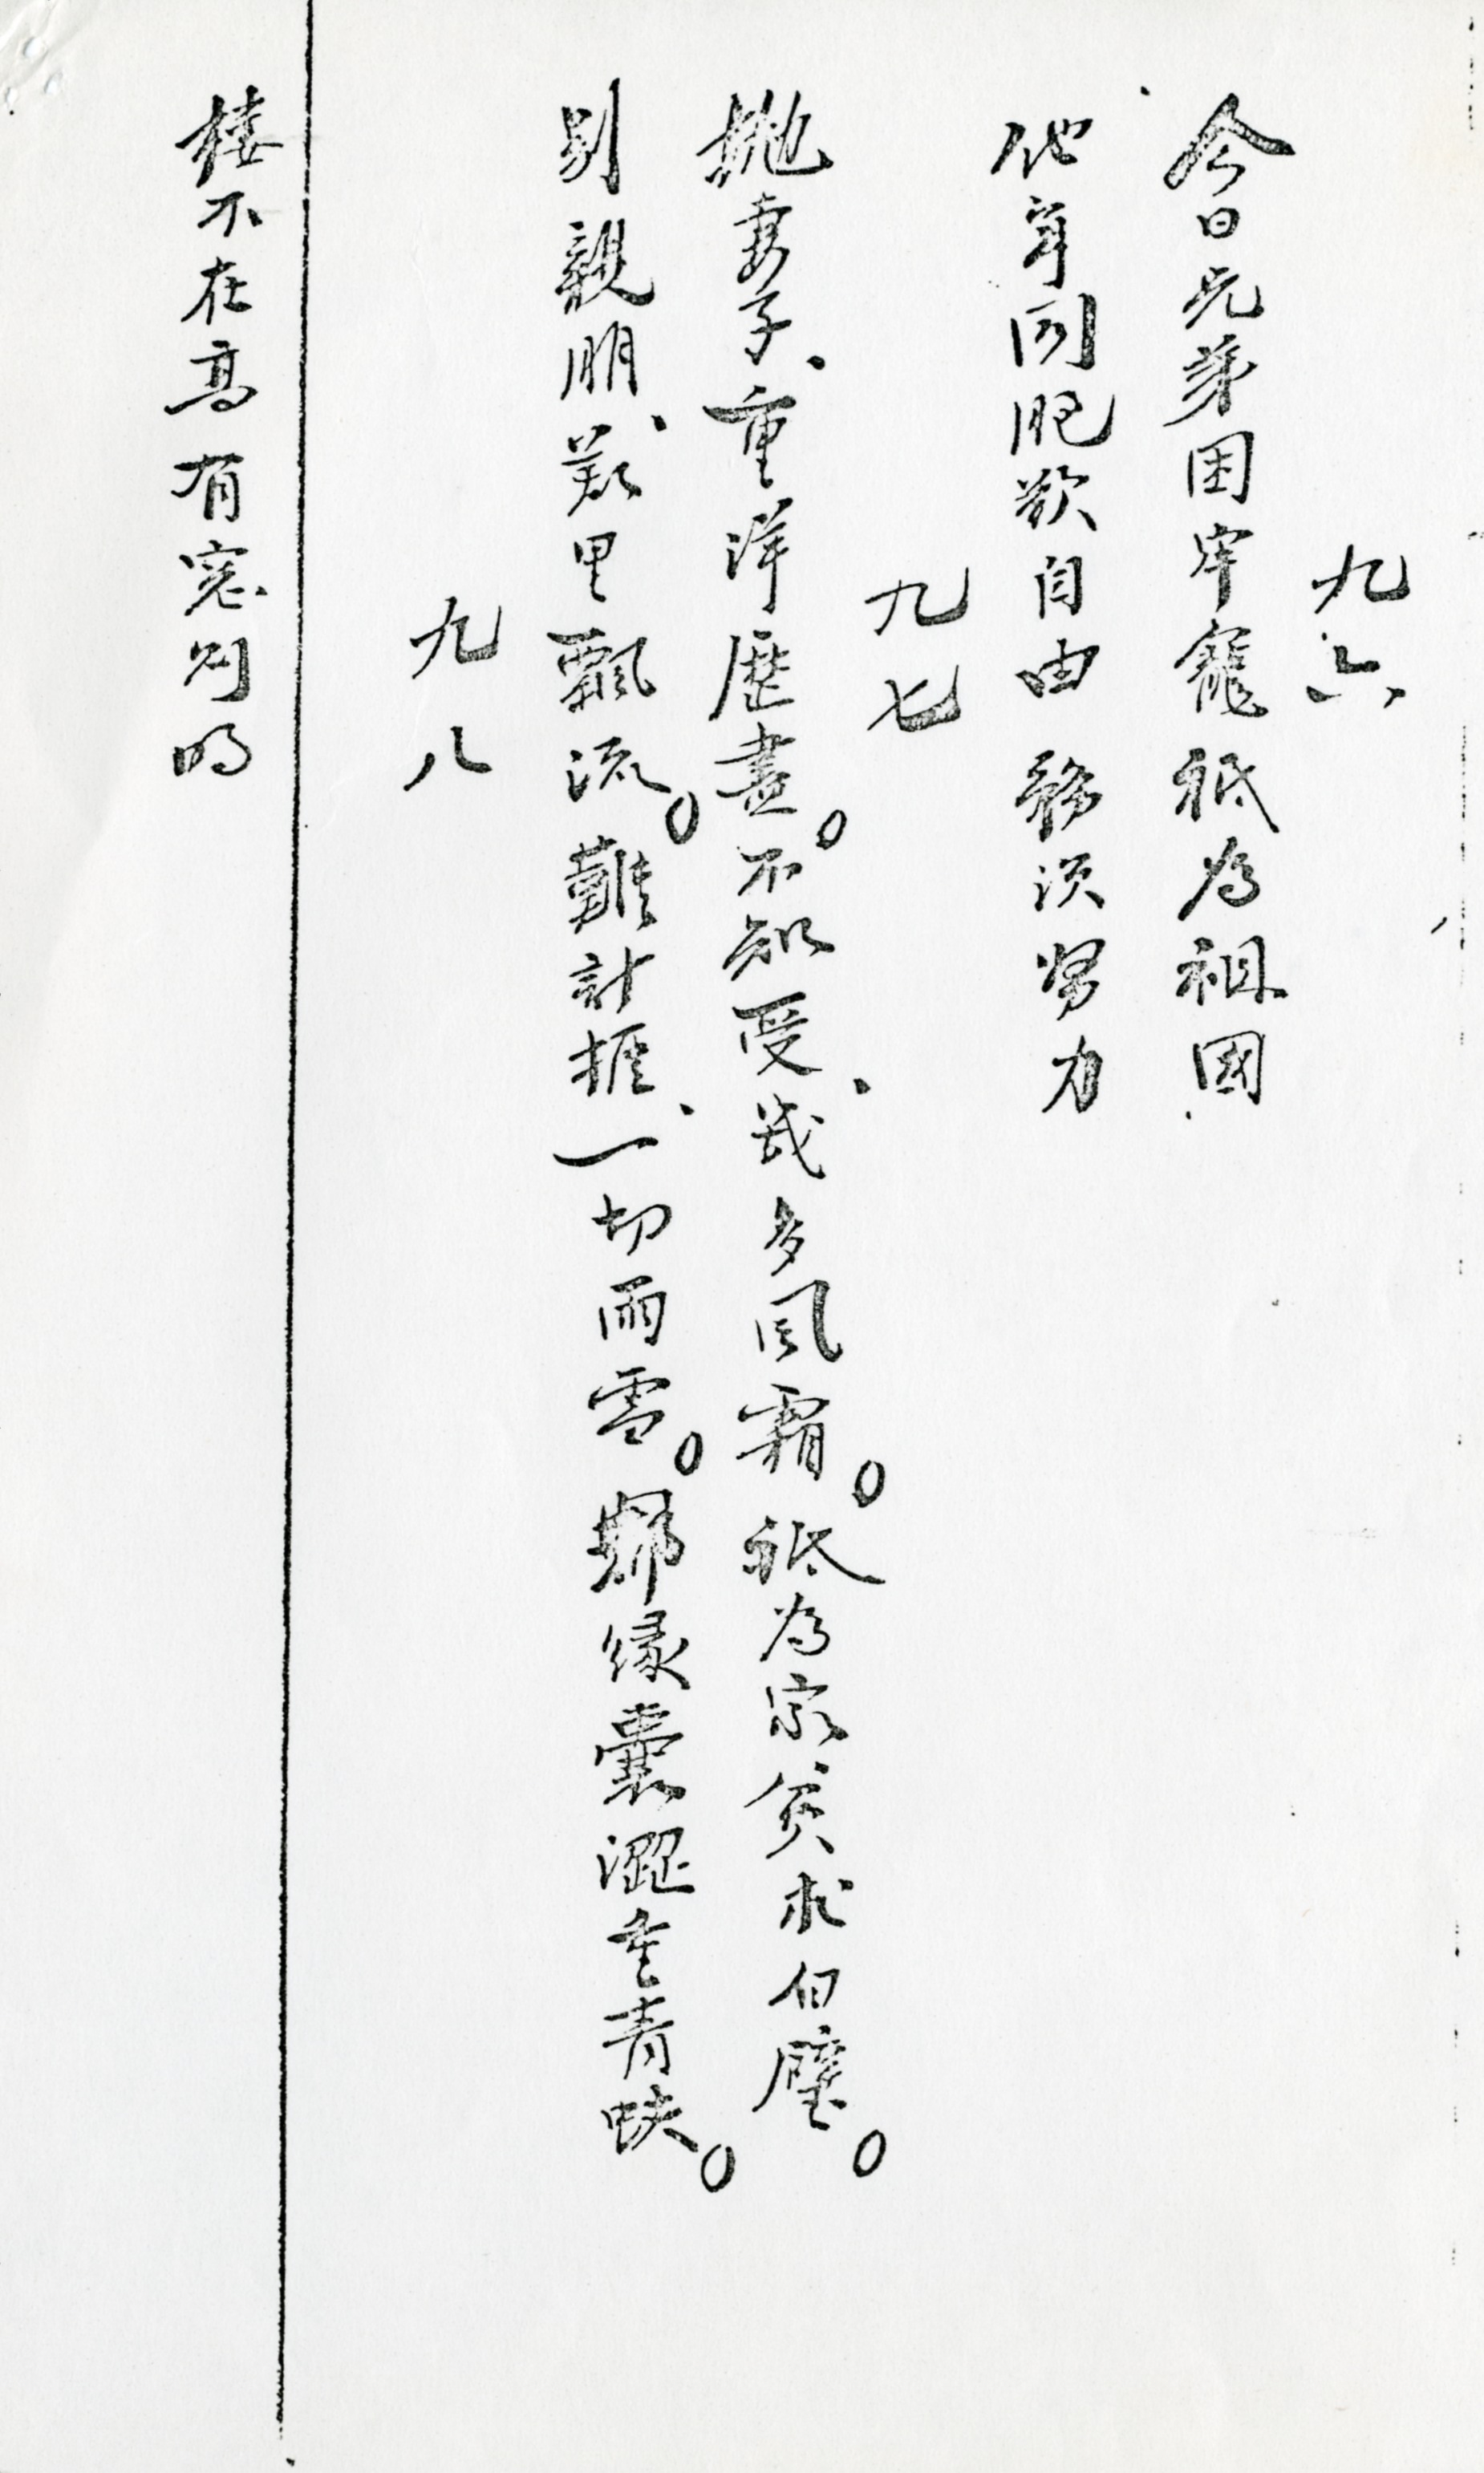 九六
今日兄弟困牢籠祗為祖國
他年同胞欲自由務須努力
九七
拋妻子、重洋歷盡。不知受、幾多風霜。祗為家貧求白璧。
別親朋、萬里飄流。難計捱、一切雨雪。都緣囊澀重青蚨。
九八
樓不在高有窓則明